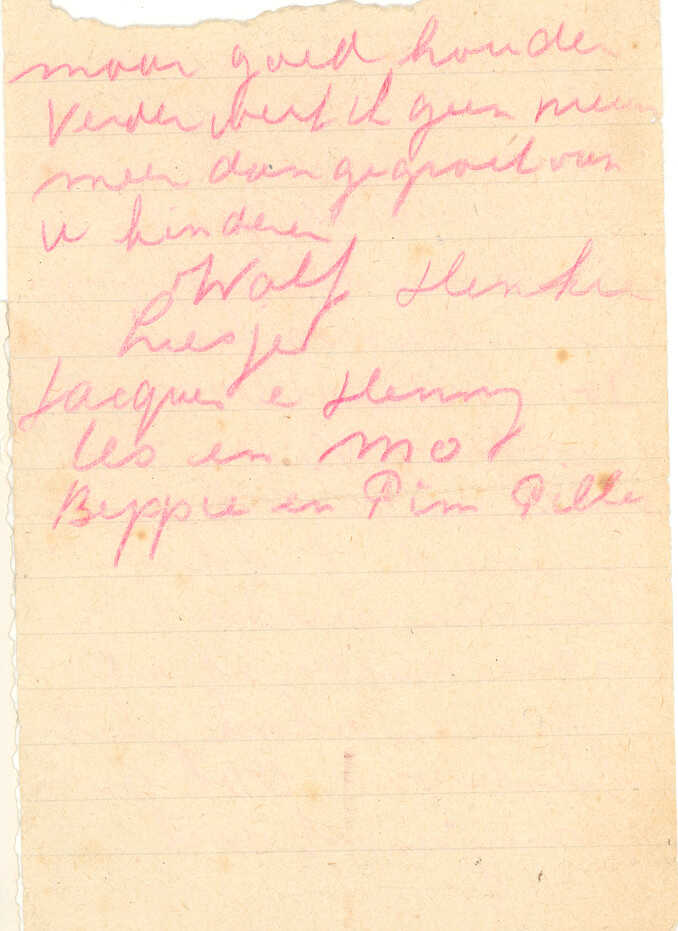 maar goed houden
Verder weet ik geen nieuws
meer dan gegroet van
u kinderen
Wolf Henkie
Liesje
Jacques e Henny
Les en Mo
Beppie en Pim Pelle